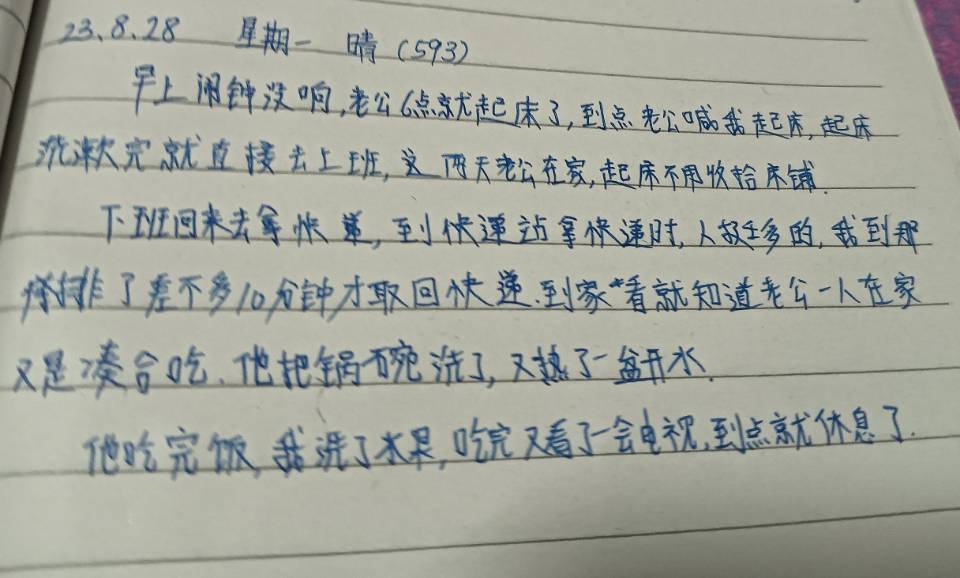 23.8.28 星期一 晴(593)
早上闹钟没响,老公6点就起床了,到点老公喊我起床,起床
洗漱完就直接去上班,这两天老公在家,起床不用收拾床铺.
下班回来去拿快递,到快递站拿快递时,人挺多的,我到那
排了差不多10分钟才取回快递.到家一看就知道老公一人在家
又是凑合吃、他把锅碗洗了,又热了一盆开水.
他吃完饭,我洗了水果,吃完又看了一会电视,到点就休息了.